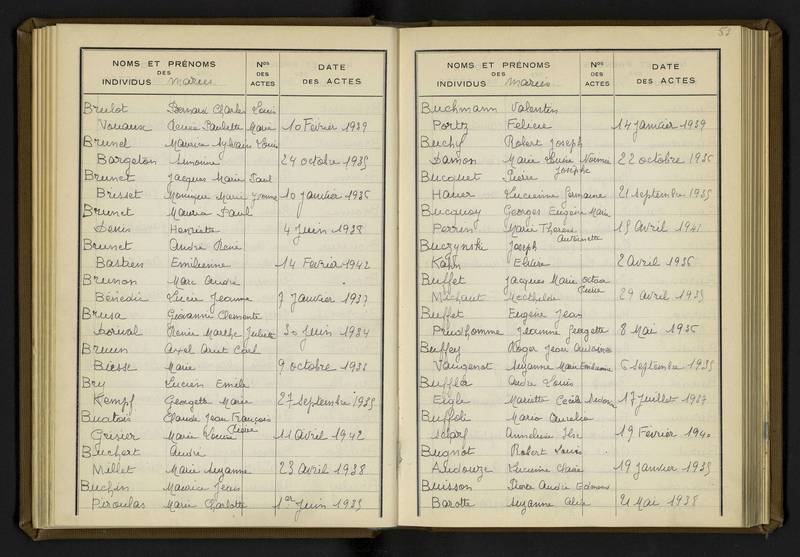 NOMS ET PRÉNOMS
DES
INDIVIDUS mariés
Nos
DES
ACTES
DATE
DES ACTES
Brulot Bernard Charles Louis
Vouaux Renée Paulette Marie 10 Février 1939
Brunel Maurice Sylvain Louis
Bargeton Simonne 24 octobre 1935
Brunet Jacques Marie Paul
Brisset Monique Marie Yvonne 10 janvier 1936
Brunet Maurice Paul
Denis Henriette 4 Juin 1938
Brunet André René
Bastien Emilienne 14 Février 1942
Brunon Marc André
Bénédic Lucie Jeanne 7 Janvier 1937
Brusa Giovanni Clemente
Dorival Renée Marthe Juliette 30 Juin 1934
Bruun Axel Carl
Biesse Marie 9 octobre 1933
Bry Lucien Emile
Kempf Georgette Marie 27 septembre 1935
Buatois Claude Jean François
Grisier Marie Louise 11 avril 1942
Buchert André
Millet Marie Suzanne 23 avril 1938
Buchin Maurice Jean
Piroulas Marie Charlotte 1er Juin 1935
51
NOMS ET PRÉNOMS
DES
INDIVIDUS mariés
Nos
DES
ACTES
DATE
DES ACTES
Buchmann Valentin
Portz Félicie 14 janvier 1939
Buchy Robert Joseph
Damon Marie Lucie Noémie 22 octobre 1936
Bucquet Pierre Joseph
Hauer Lucienne Germaine 21 septembre 1935
Bucquoy Georges Eugène Marie
Perrin Marie Thérèse Antoinette 15 Avril 1941
Buczynski Joseph
Kahn Elvire 2 Avril 1936
Buffet Jacques Marie Octave Pierre
Michaut Mathilde 29 avril 1935
Buffet Eugène Jean
Prudhomme Jeanne Georgette 8 Mai 1936
Buffey Roger Jean Antoine
Vaugenot Suzanne Marie Emilienne 6 septembre 1935
Buffler André Louis
Eigle Mariette Cécile 17 Juillet 1937
Buffoli Mario Aurelio
Scharf Anneliese Ilse 19 Février 1940
Bugnot Robert Louis
Andouze Lucienne Claire 19 janvier 1935
Buisson Pierre André Edmond
Barotte Suzanne Alice 21 Mai 1938